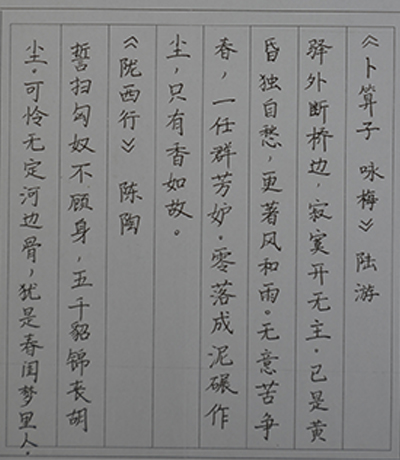 《卜算子 咏梅》 陆游
驿外断桥边，寂寞开无主．已是黄
昏独自愁，更著风和雨。无意苦争
春，一任群芳妒．零落成泥碾作
尘，只有香如故。
《陇西行》 陈陶
誓扫匈奴不顾身，五千貂锦丧胡
尘．可怜无定河边骨，犹是春闺梦里人．